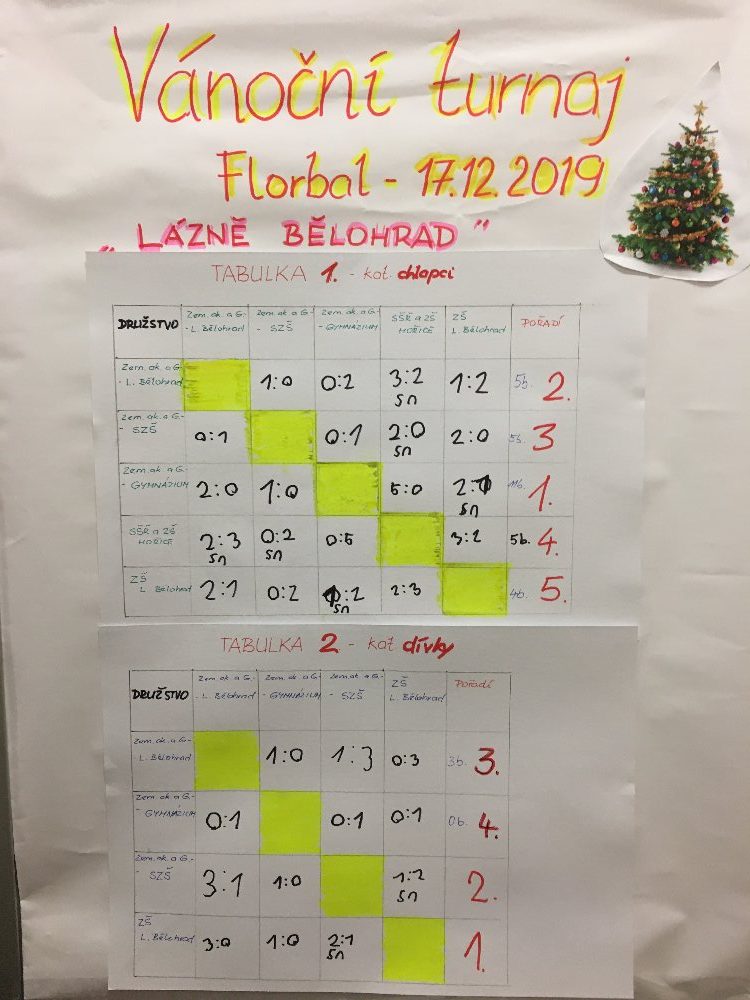 Vánoční turnaj
Florbal - 17.12.2019
„LÁZNĚ BĚLOHRAD"
TABULKA 1. - kat. chlapci
DRUŽSTVO Zem. ak. a G. - L. Bělohrad Zem. ak. a G. - SZŠ Zem. ak. a G. - GYMNÁZIUM SŠŘ a ZŠ HOŘICE ZŠ L. Bělohrad POŘADÍ
Zem. ak. a G. - L. Bělohrad 1:0 0:2 3:2 sn 1:2 5b. 2.
Zem. ak. a G. - SZŠ 0:1 0:1 2:0 sn 2:0 5b. 3
Zem. ak. a G. - GYMNÁZIUM 2:0 1:0 5:0 2:1 sn 11b. 1.
SŠŘ a ZŠ HOŘICE 2:3 sn 0:2 sn 0:5 3:2 5b. 4.
ZŠ L. Bělohrad 2:1 0:2 1:2 sn 2:3 4b. 5.
TABULKA 2 - kat. dívky
DRUŽSTVO Zem. ak. a G. - L. Bělohrad Zem. ak. a G. - GYMNÁZIUM Zem. ak. a G. - SZŠ ZŠ L. Bělohrad Pořadí
Zem. ak. a G. - L. Bělohrad 1:0 1:3 0:3 3b. 3.
Zem. ak. a G. - GYMNÁZIUM 0:1 0:1 0:1 0b. 4.
Zem. ak. a G. - SZŠ 3:1 1:0 1:2 sn 2.
ZŠ L. Bělohrad 3:0 1:0 2:1 sn 1.